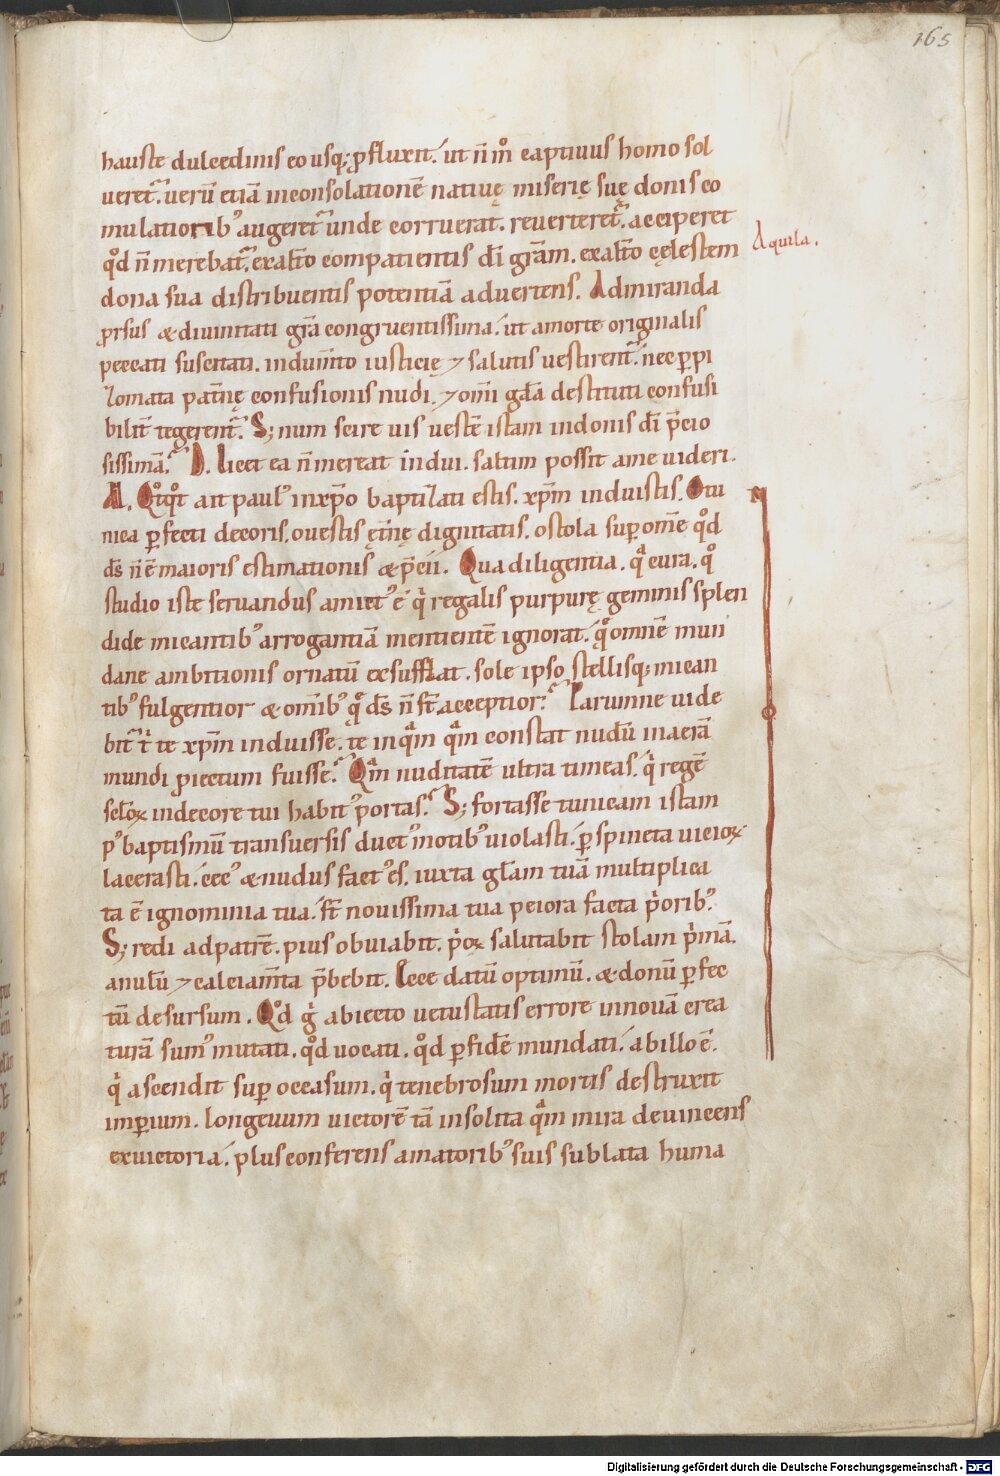 165
hauste dulcedinis eo usq; ꝓfluxit. ut n̄ m̊ captiuus homo sol
ueret. uerū etiā inconsolationē natiuę miserię suę donis cu
mulatiorib᾽ augeret. unde corruerat. reuerteret. acciperet
Aquila.
qͦd n̄ merebat. ex alto compatientis dī grām. ex alto cęlestem
dona sua distribuentis potentiā aduertens. Admiranda
ꝓrsus & diuinitati grā congruentissima. ut a morte originalis
peccati suscitati. indum̄to iusticię ⁊ salutis uestirent. nec ꝑpi
zomata pat̄nę confusionis nudi. ⁊ om̄i gl̄a destituti confusi
bilit̄ tegerent. S; num scire uis uestē istam in donis dī p̄cio
sissimā. D. Licet ea n̄ merear indui. saltim possit a me uideri.
A. Qͦtqͦt ait paul᾽ in xp̄o baptizati estis. xp̄m induistis. O tu
nica ꝑfecti decoris. o uestis ęt̄nę dignitatis. o stola suꝑ om̄e qͦd
d̄s n̄ ē maioris estimationis & p̄cii. Qua diligentia. qͣ cura. qͦ
studio iste seruandus amict᾽ ē qͥ regalis purpurę gemmis splen
dide micantib᾽ arrogantiā mentientē ignorat. qͥ omnē mun
danę ambitionis ornatū exsufflat. sole ipso stellisq; mican
tib᾽ fulgentior & om̄ib᾽ qͥ d̄s n̄ st̄ acceptior. Parumne uide
bit t̄ te xp̄m induisse. te inqͣm qͣm constat nudū in aerā
mundi ꝓiectum fuisse. Qm̄ nuditatē ultra timeas. qͥ regē
sclꝝ in decore tui habit᾽ portas. S; fortasse tunicam istam
p᾽ baptismū transuersis duct᾽ motib᾽ uiolasti. ꝑ spineta uicioꝝ
lacerasti. ecc᾽ & nudus fact᾽ es. iuxta gl̄am tuā multiplica
ta ē ignominia tua. st̄ nouissima tua peiora facta pͥorib᾽.
S; redi ad patrē. pius obuiabit. pͥoꝝ salutabit stolam pͥmā.
anulū ⁊ calciam̄ta p̄bebit. Ecce datū optimū. & donū ꝑfec
tū desursum. Qͦd gͥ abiecto uetustatis errore in nouā crea
turā sum᾽ mutati. qͦd uocati. qͦd ꝑ fidē mundati. ab illo ē.
qͥ ascendit suꝑ occasum. qͥ tenebrosum mortis destruxit
imꝑium. longeuum uictorē tā insolita qͣm mira deuincens
ex uictoria. plus conferens amatorib᾽ suis sublata huma
Digitalisierung gefördert durch die Deutsche Forschungsgemeinschaft - DFG